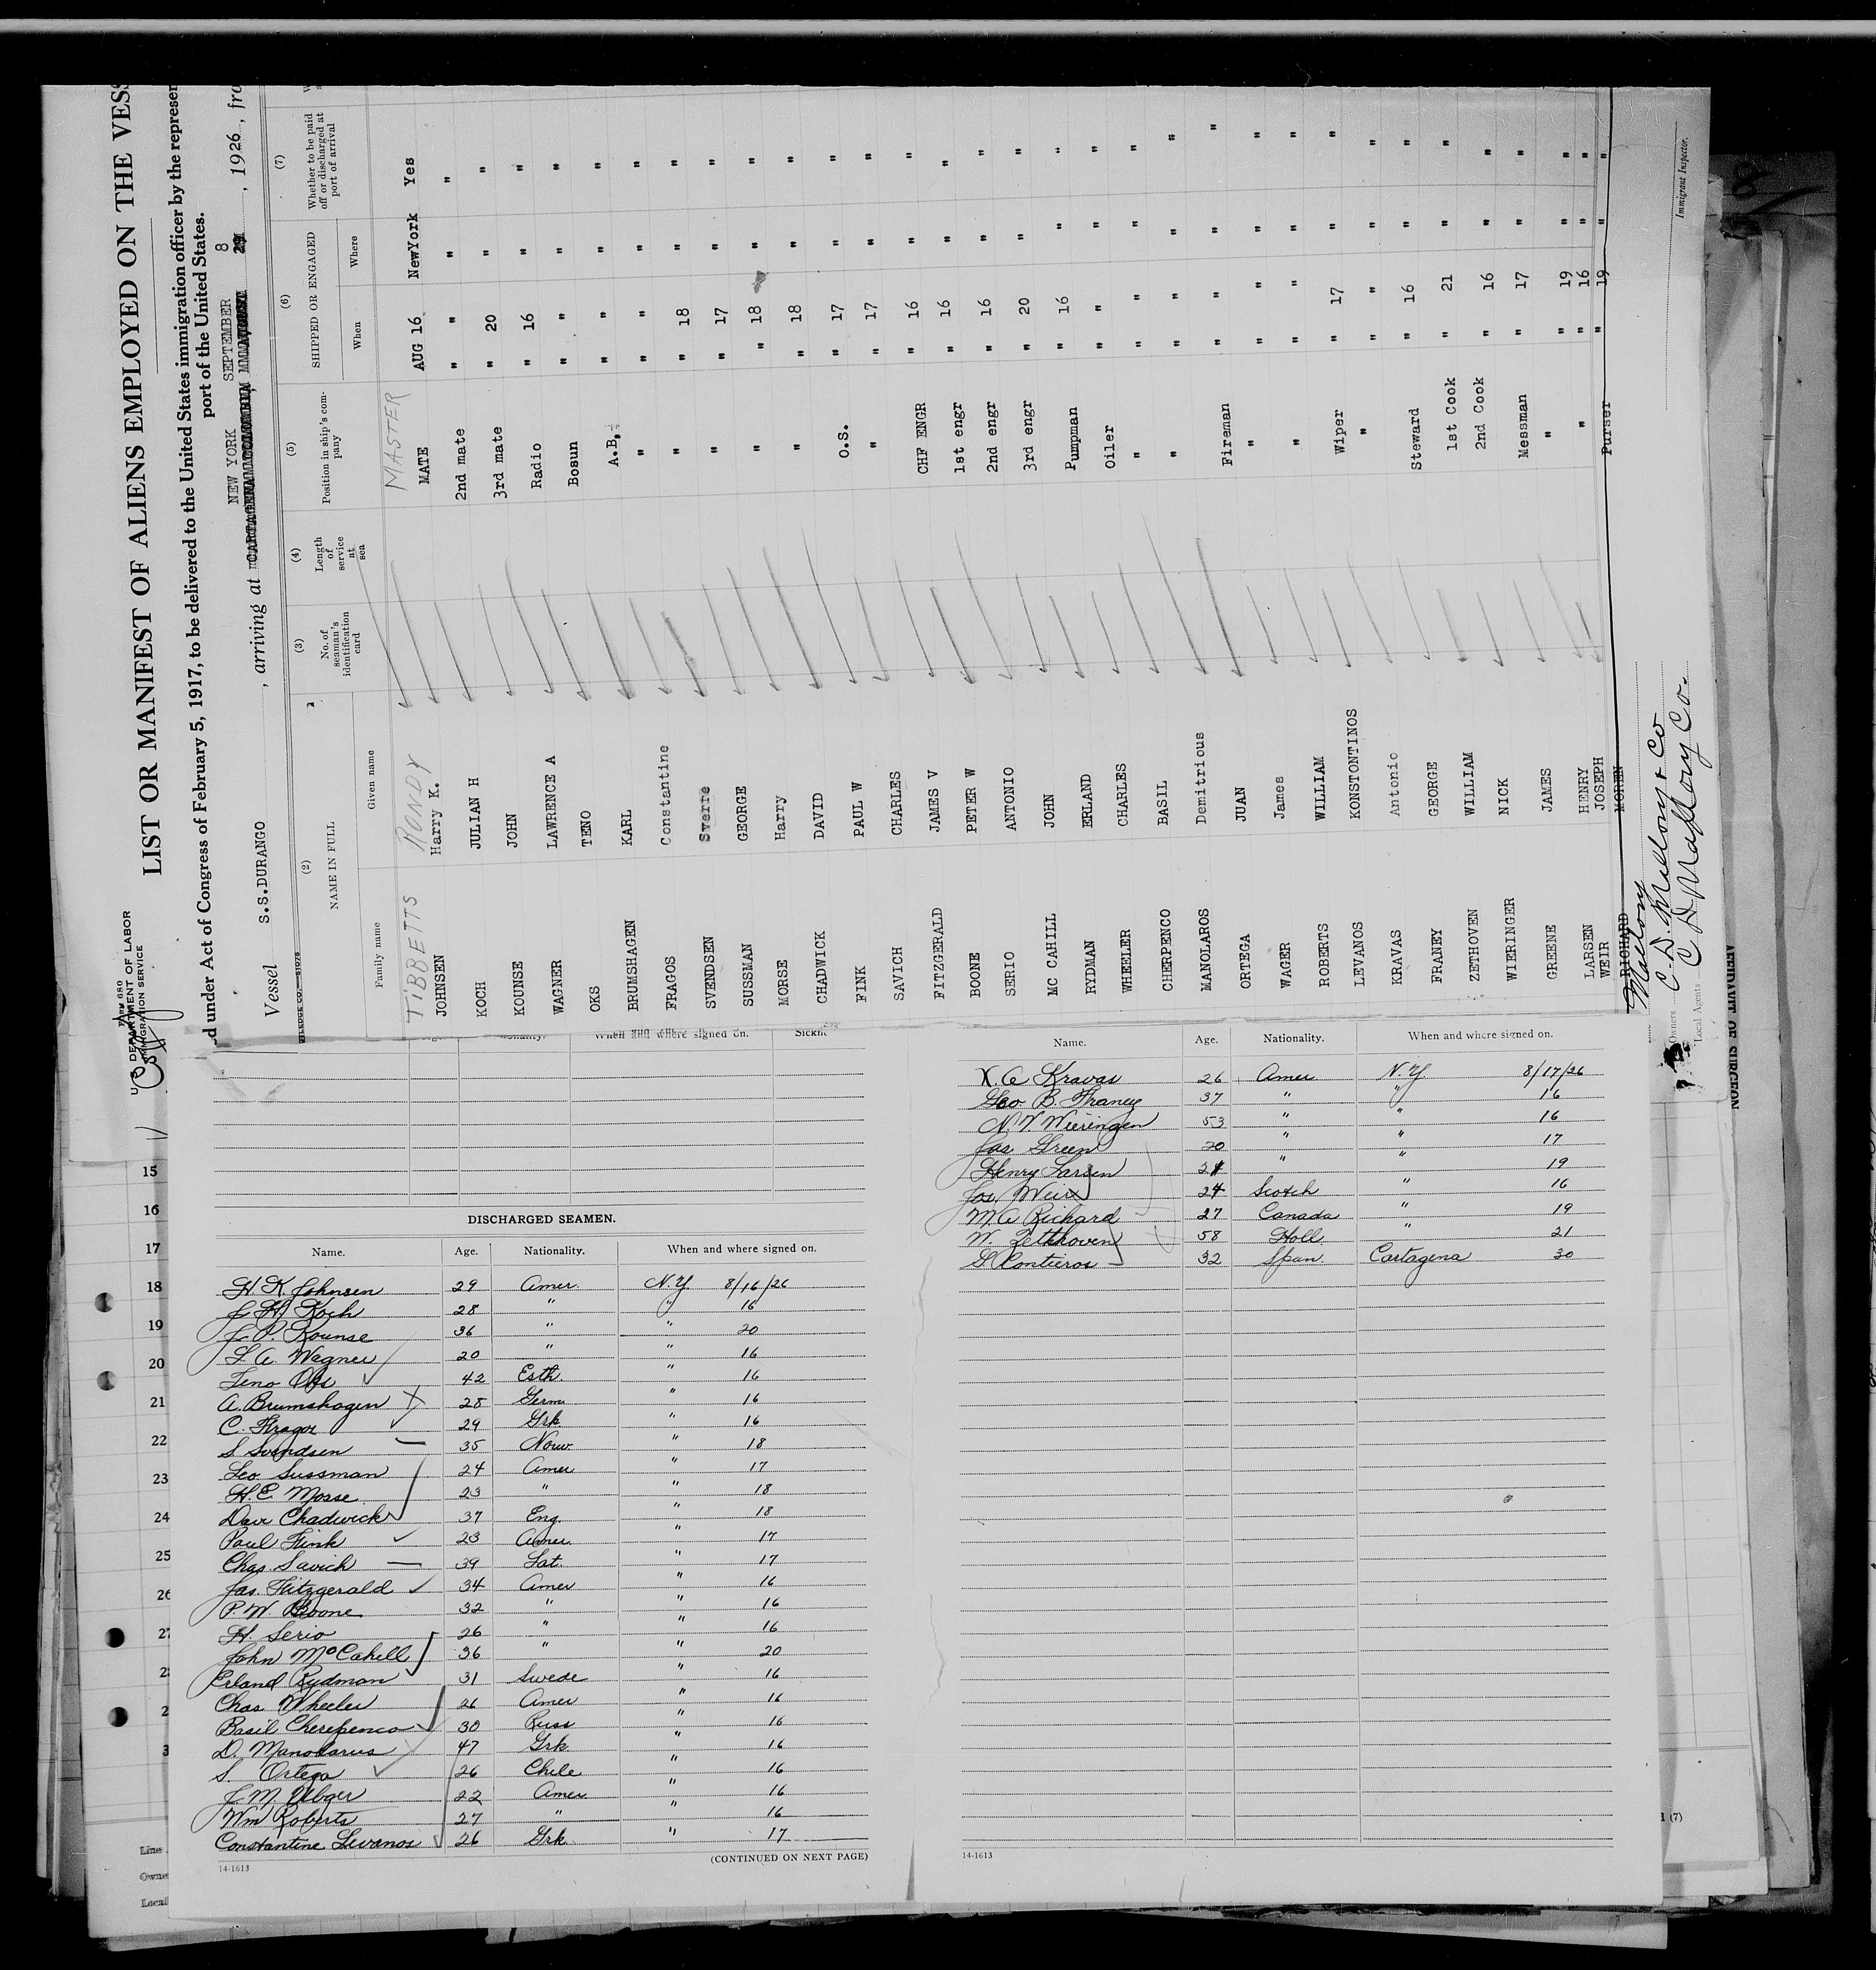 8
Form 680
U. S. DEPARTMENT OF LABOR
IMMIGRATION SERVICE
LIST OR MANIFEST OF ALIENS EMPLOYED ON THE VESS
d under Act of Congress of February 5, 1917, to be delivered to the United States immigration officer by the represen
port of the United States.
NEW YORK SEPTEMBER 8
Vessel S.S.DURANGO , arriving at , 1926 , fro
(2) (3) (4) (5) (6) (7)
NAME IN FULL No. of seaman's identification card Length of service at sea Position in ship's company SHIPPED OR ENGAGED Whether to be paid off or discharged at port of arrival
Family name Given name When Where
TIBBETTS RONDY MASTER
JOHNSEN Harry K. MATE AUG 16 NewYork Yes
KOCH JULIAN H 2nd mate " " " "
KOUNSE JOHN 3rd mate " 20 " "
WAGNER LAWRENCE A Radio " 16 " "
OKS TENO Bosun " " " "
BRUMSHAGEN KARL A.B. " " " "
FRAGOS Constantine " " " " "
SVENDSEN Sverre " " 18 " "
SUSSMAN GEORGE " " 17 " "
MORSE Harry " " 18 " "
CHADWICK DAVID " " 18 " "
FINK PAUL W O.S. " 17 " "
SAVICH CHARLES " " 17 " "
FITZGERALD JAMES V CHF ENGR " 16 " "
BOONE PETER W 1st engr " 16 " "
SERIO ANTONIO 2nd engr " 16 " "
MC CAHILL JOHN 3rd engr " 20 " "
RYDMAN ERLAND Pumpman " 16 " "
WHEELER CHARLES Oiler " " " "
CHERPENCO BASIL " " " " "
MANOLAROS Demitrious " " " " "
ORTEGA JUAN Fireman " " " "
WAGER James " " " " "
ROBERTS WILLIAM " " " " "
LEVANOS KONSTONTINOS Wiper " 17 " "
KRAVAS Antonio " " " " "
FRANEY GEORGE Steward " 16 " "
ZETHOVEN WILLIAM 1st Cook " 21 " "
WIERINGER NICK 2nd Cook " 16 " "
GREENE JAMES Messman " 17 " "
LARSEN HENRY " " 19 " "
WEIR JOSEPH " " 16 " "
RICHARD MOREN Purser " 19 " "
Immigrant Inspector.
Mallory
Owners C. D. Mallory & Co
Local Agents C D Mallory Co.
AFFIDAVIT OF SURGEON
When and where signed on.
15
16
17
18
19
20
21
22
23
24
25
DISCHARGED SEAMEN.
Name. Age. Nationality. When and where signed on.
H. K. Johnsen 29 Amer. N.Y. 8/16/26
J. H. Koch 28 " " 16
J. P. Kounse 36 " " 20
L. A. Wagner 20 " " 16
Teno Oks 42 Esth. " 16
A. Brumshagen 28 Germ. " 16
C. Fragos 29 Grk. " 16
S. Svendsen 35 Norw. " 18
Geo. Sussman 24 Amer " 17
H. E. Morse 23 " " 18
Dave Chadwick 37 Eng. " 18
Paul Fink 23 Amer. " 17
Chas. Savich 39 Lat. " 17
Jas. Fitzgerald 34 Amer " 16
P. W. Boone 32 " " 16
H. Serio 26 " " 16
John McCahill 36 " " 20
Erland Rydman 31 Swede " 16
Chas. Wheeler 26 Amer " 16
Basil Cherepenco 30 Russ " 16
D. Manolarus 47 Grk. " 16
S. Ortega 26 Chile " 16
J. M. 22 Amer " 16
Wm Roberts 27 " " 16
Constantine Levanos 26 Grk. " 17
14-1613 (CONTINUED ON NEXT PAGE)
Name. Age. Nationality. When and where signed on.
X. A Kravas 26 Amer N.Y 8/17/26
Geo. B. Franey 37 " " 16
N. V. Wieringen 53 " " 16
Jas. Green 20 " " 17
Henry Larsen 21 " " 19
Jos. Weir 24 Scotch " 16
M. A Richard 27 Canada " 19
W. Zethhoven 58 Holl. " 21
S. Pontieros 32 Span. Cartagena 30
14-1613
Line
Owne
Local
(7)